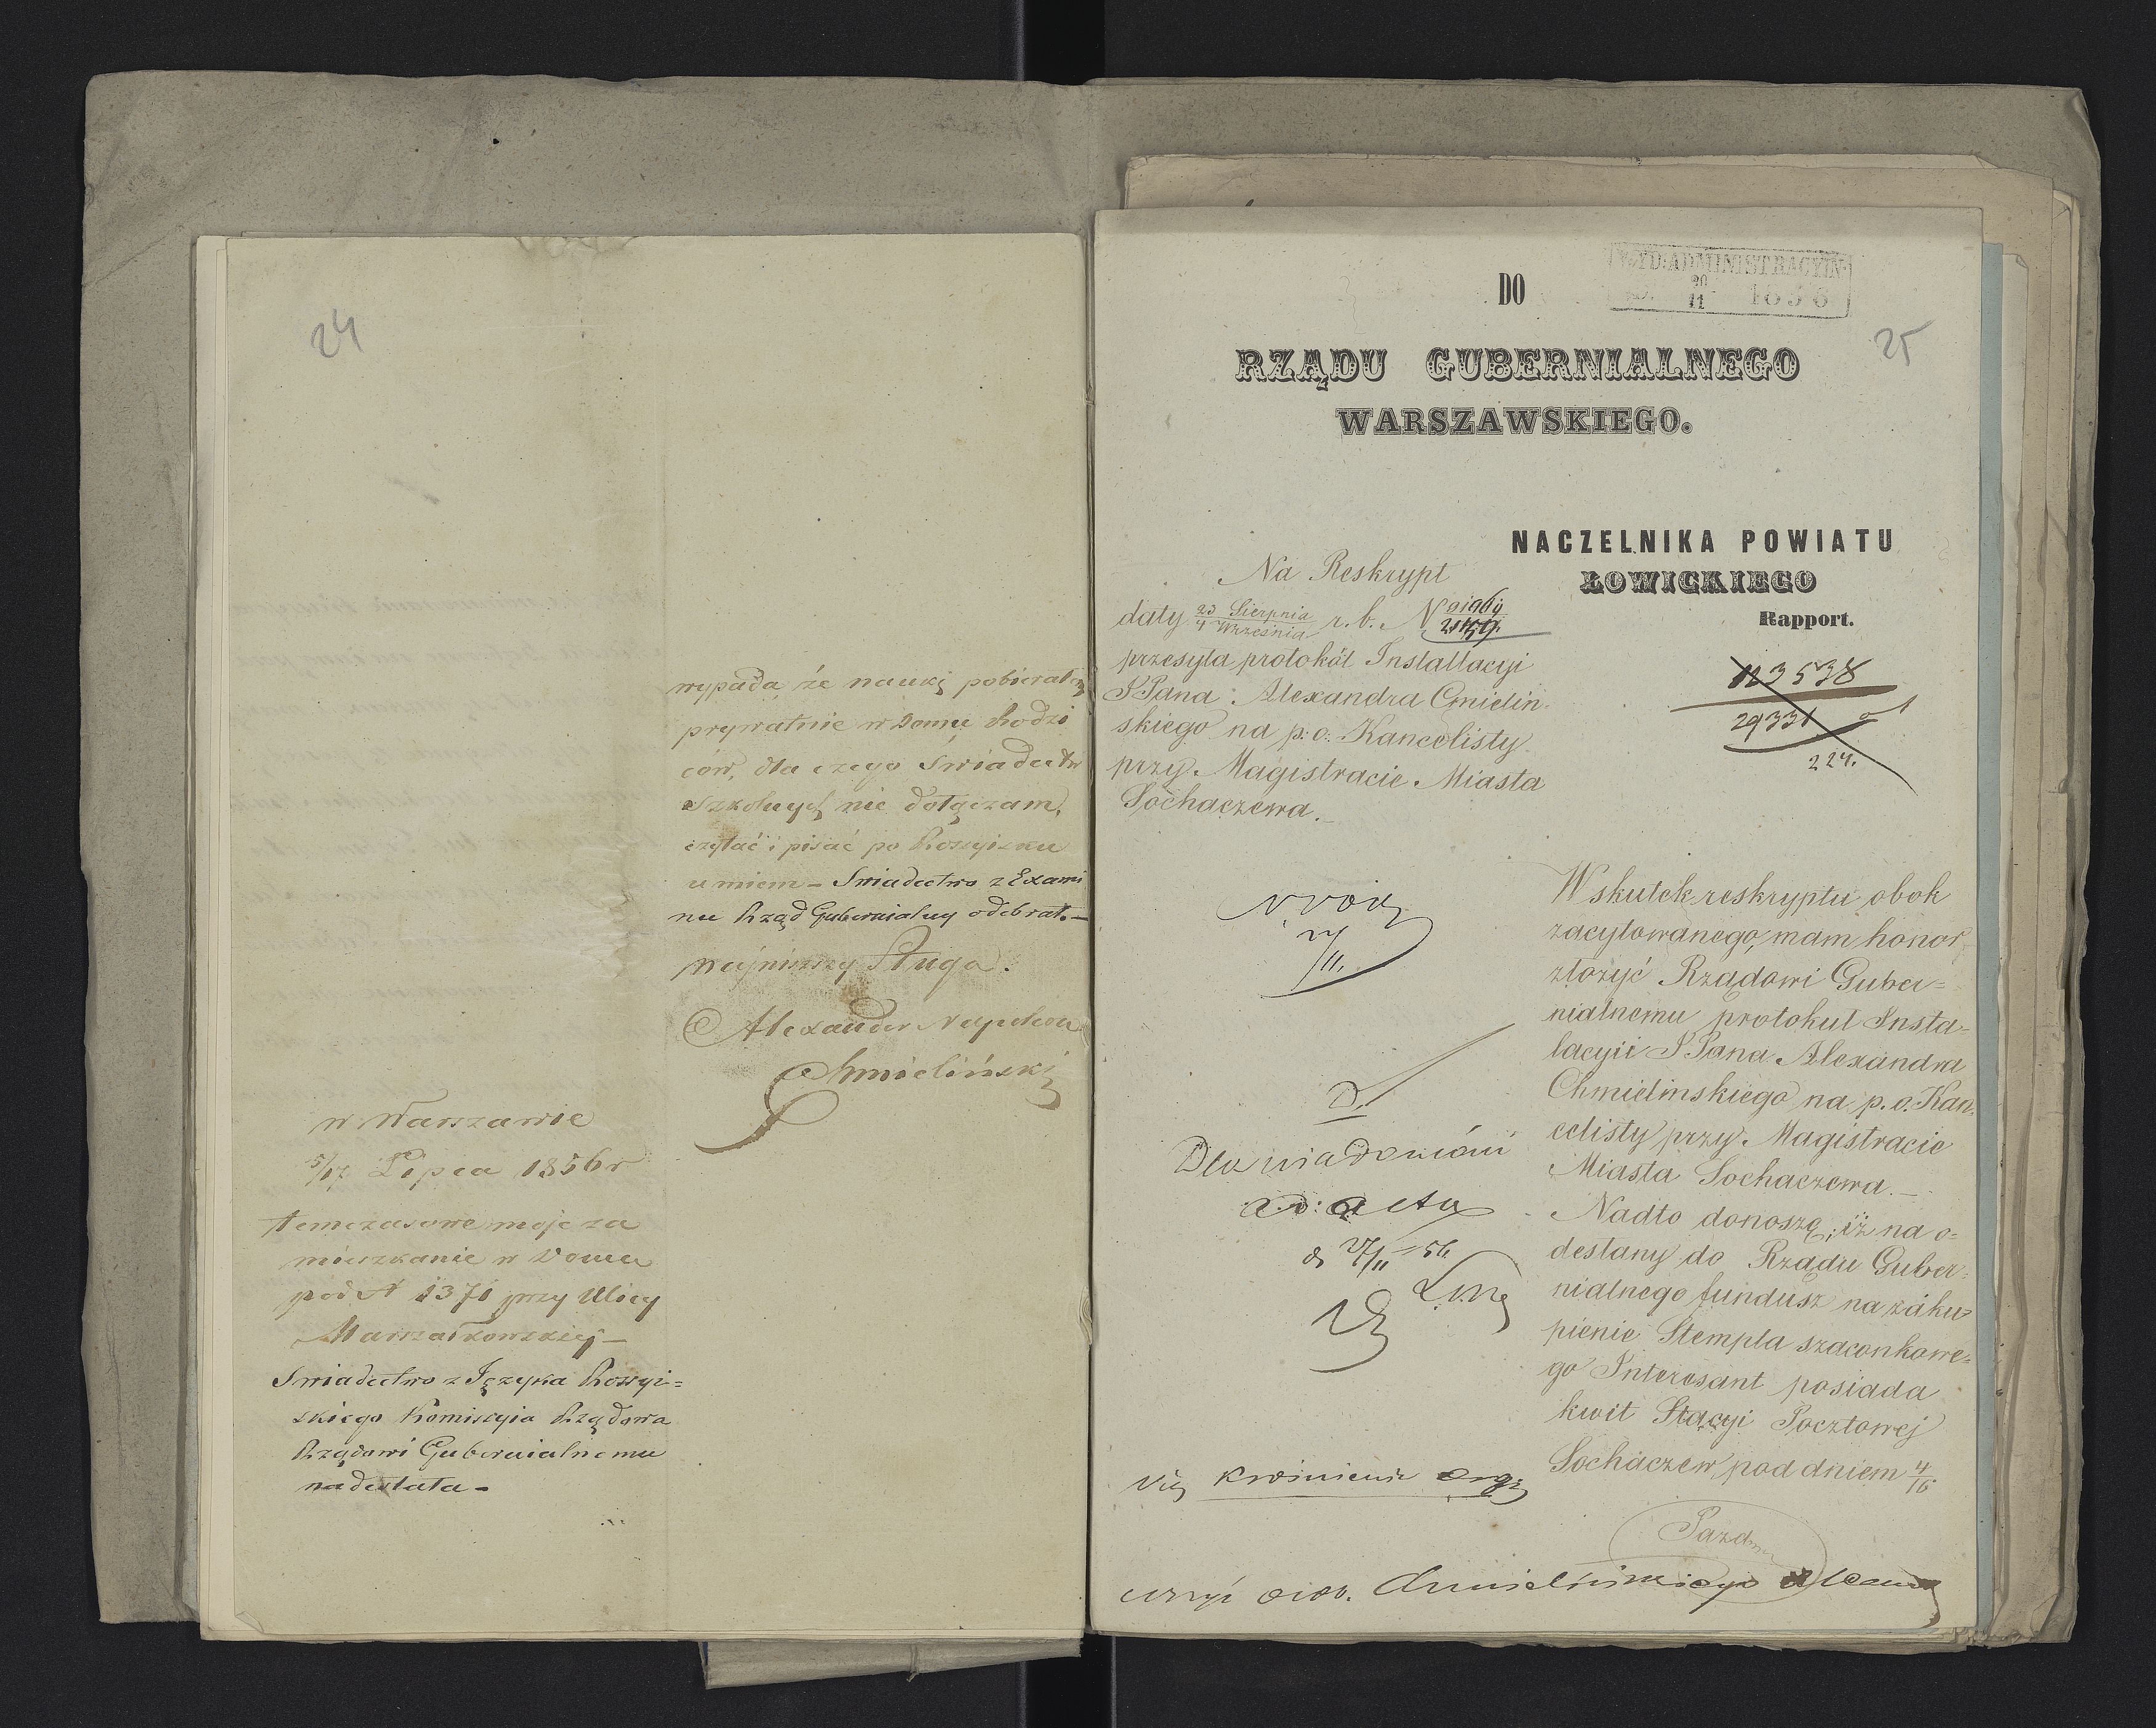 24
wypada że nauki pobierałem
prywatnie w Domu Rodzi
ców, dla czego Świadectw
Szkolnych nie dołączam,
czytać i pisać po Rossyisku
umiem – Świadectwo z Exami
nu Rząd Gubernialny odebrał. –
Najniższy Sługa.
Alexander Napoleon
Chmieliński
w Warszawie
5/17 Lipca 1856 r
temczasowe moje za
mieszkanie w Domu
pod N 1371 przy Ulicy
Marszałkowskiej –
Swiadectwo z Języka Rossyi=
skiego Komissyia Rządowa
Rządowi Gubernialnemu
nadesłała –
WYD: ADMINISTRACYIN:
20/11 1856
DO
25
RZĄDU GUBERNIALNEGO
WARSZAWSKIEGO.
NACZELNIKA POWIATU
ŁOWICKIEGO
Rapport.
Na Reskrypt
daty 23 Sierpnia/4 Września r. b. N
przesyła protokół Installacyi
JPana Alexandra Cmielin
skiego na p. o. Kancelisty
przy Magistracie Miasta
Sochaczewa. –
113538
29331
224.
27/11.
D.
Dla wiadomości
ad acta
d 27/11 56
Wskutek reskryptu obok
zacytowanego, mam honor
złożyć Rządowi Guber=
nialnemu protokuł Insta-
lacyii JPana Alexandra
Chmielinskiego na p. o. Kan
celisty przy Magistracie
Miasta Sochaczewa. –
Nadto donoszę, iż na o=
desłany do Rządu Guber=
nialnego fundusz na zaku=
pienie Stempla szacunkowe=
go Interesant posiada
kwit Stacyi Pocztowej
Sochaczew pod dniem 4/16
Pazd
Chmielińskiego